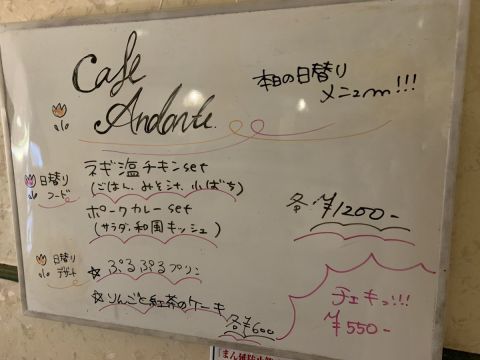 Cafe
Andante.
本日の日替り
メニューm!!!
日替り
フード
ネギ塩チキンset
(ごはん、みそ汁、小ばち)
ポークカレーset
(サラダ、和風キッシュ)
各¥1200-
日替り
デザート
☆ぷるぷるプリン
☆りんごと紅茶のケーキ
各¥600
チェキっ!!!
¥550-